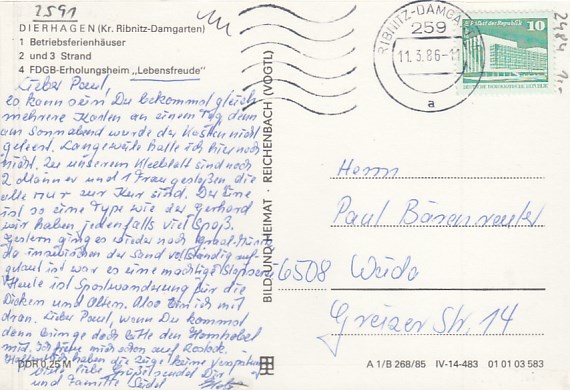 2591
DIERHAGEN (Kr. Ribnitz-Damgarten)
1 Betriebsferienhäuser
2 und 3 Strand
4 FDGB-Erholungsheim „Lebensfreude"
Lieber Paul,
es kann sein Du bekommst gleich
mehrere Karten an einem Tag denn
am Sonnabend wurde der Kasten nicht
geleert. Langeweile hatte ich hier noch
nicht. Zu unserem Kleeblatt sind noch
2 Männer und 1 Frau gestoßen die
alle nur zur Kur sind. Der eine
ist so eine Type wie der Gerhard
wir haben jedenfalls viel Spaß.
Gestern ging es wieder nach
da inzwischen der Sand vollständig auf-
getaut ist war es eine mächtige
Heute ist Sportwanderung für die
Dicken und Alten. Also bin ich mit
dran. Lieber Paul, wenn Du kommst
dann bringe doch bitte den Hornhobel
mit. Ich freue mich schon auf Rostock.
Hoffentlich haben die Züge keine
und Familie Seidel
DDR 0,25 M
BILD UND HEIMAT · REICHENBACH (VOGTL)
RIBNITZ-DAMGARTEN
259
11.3.86-11
a
Palast der Republik
10
DEUTSCHE DEMOKRATISCHE REPUBLIK
2484
Herrn
Paul Bärenreuter
6508 Weida
Greizer Str. 14
A 1/B 268/85 IV-14-483 01 01 03 583